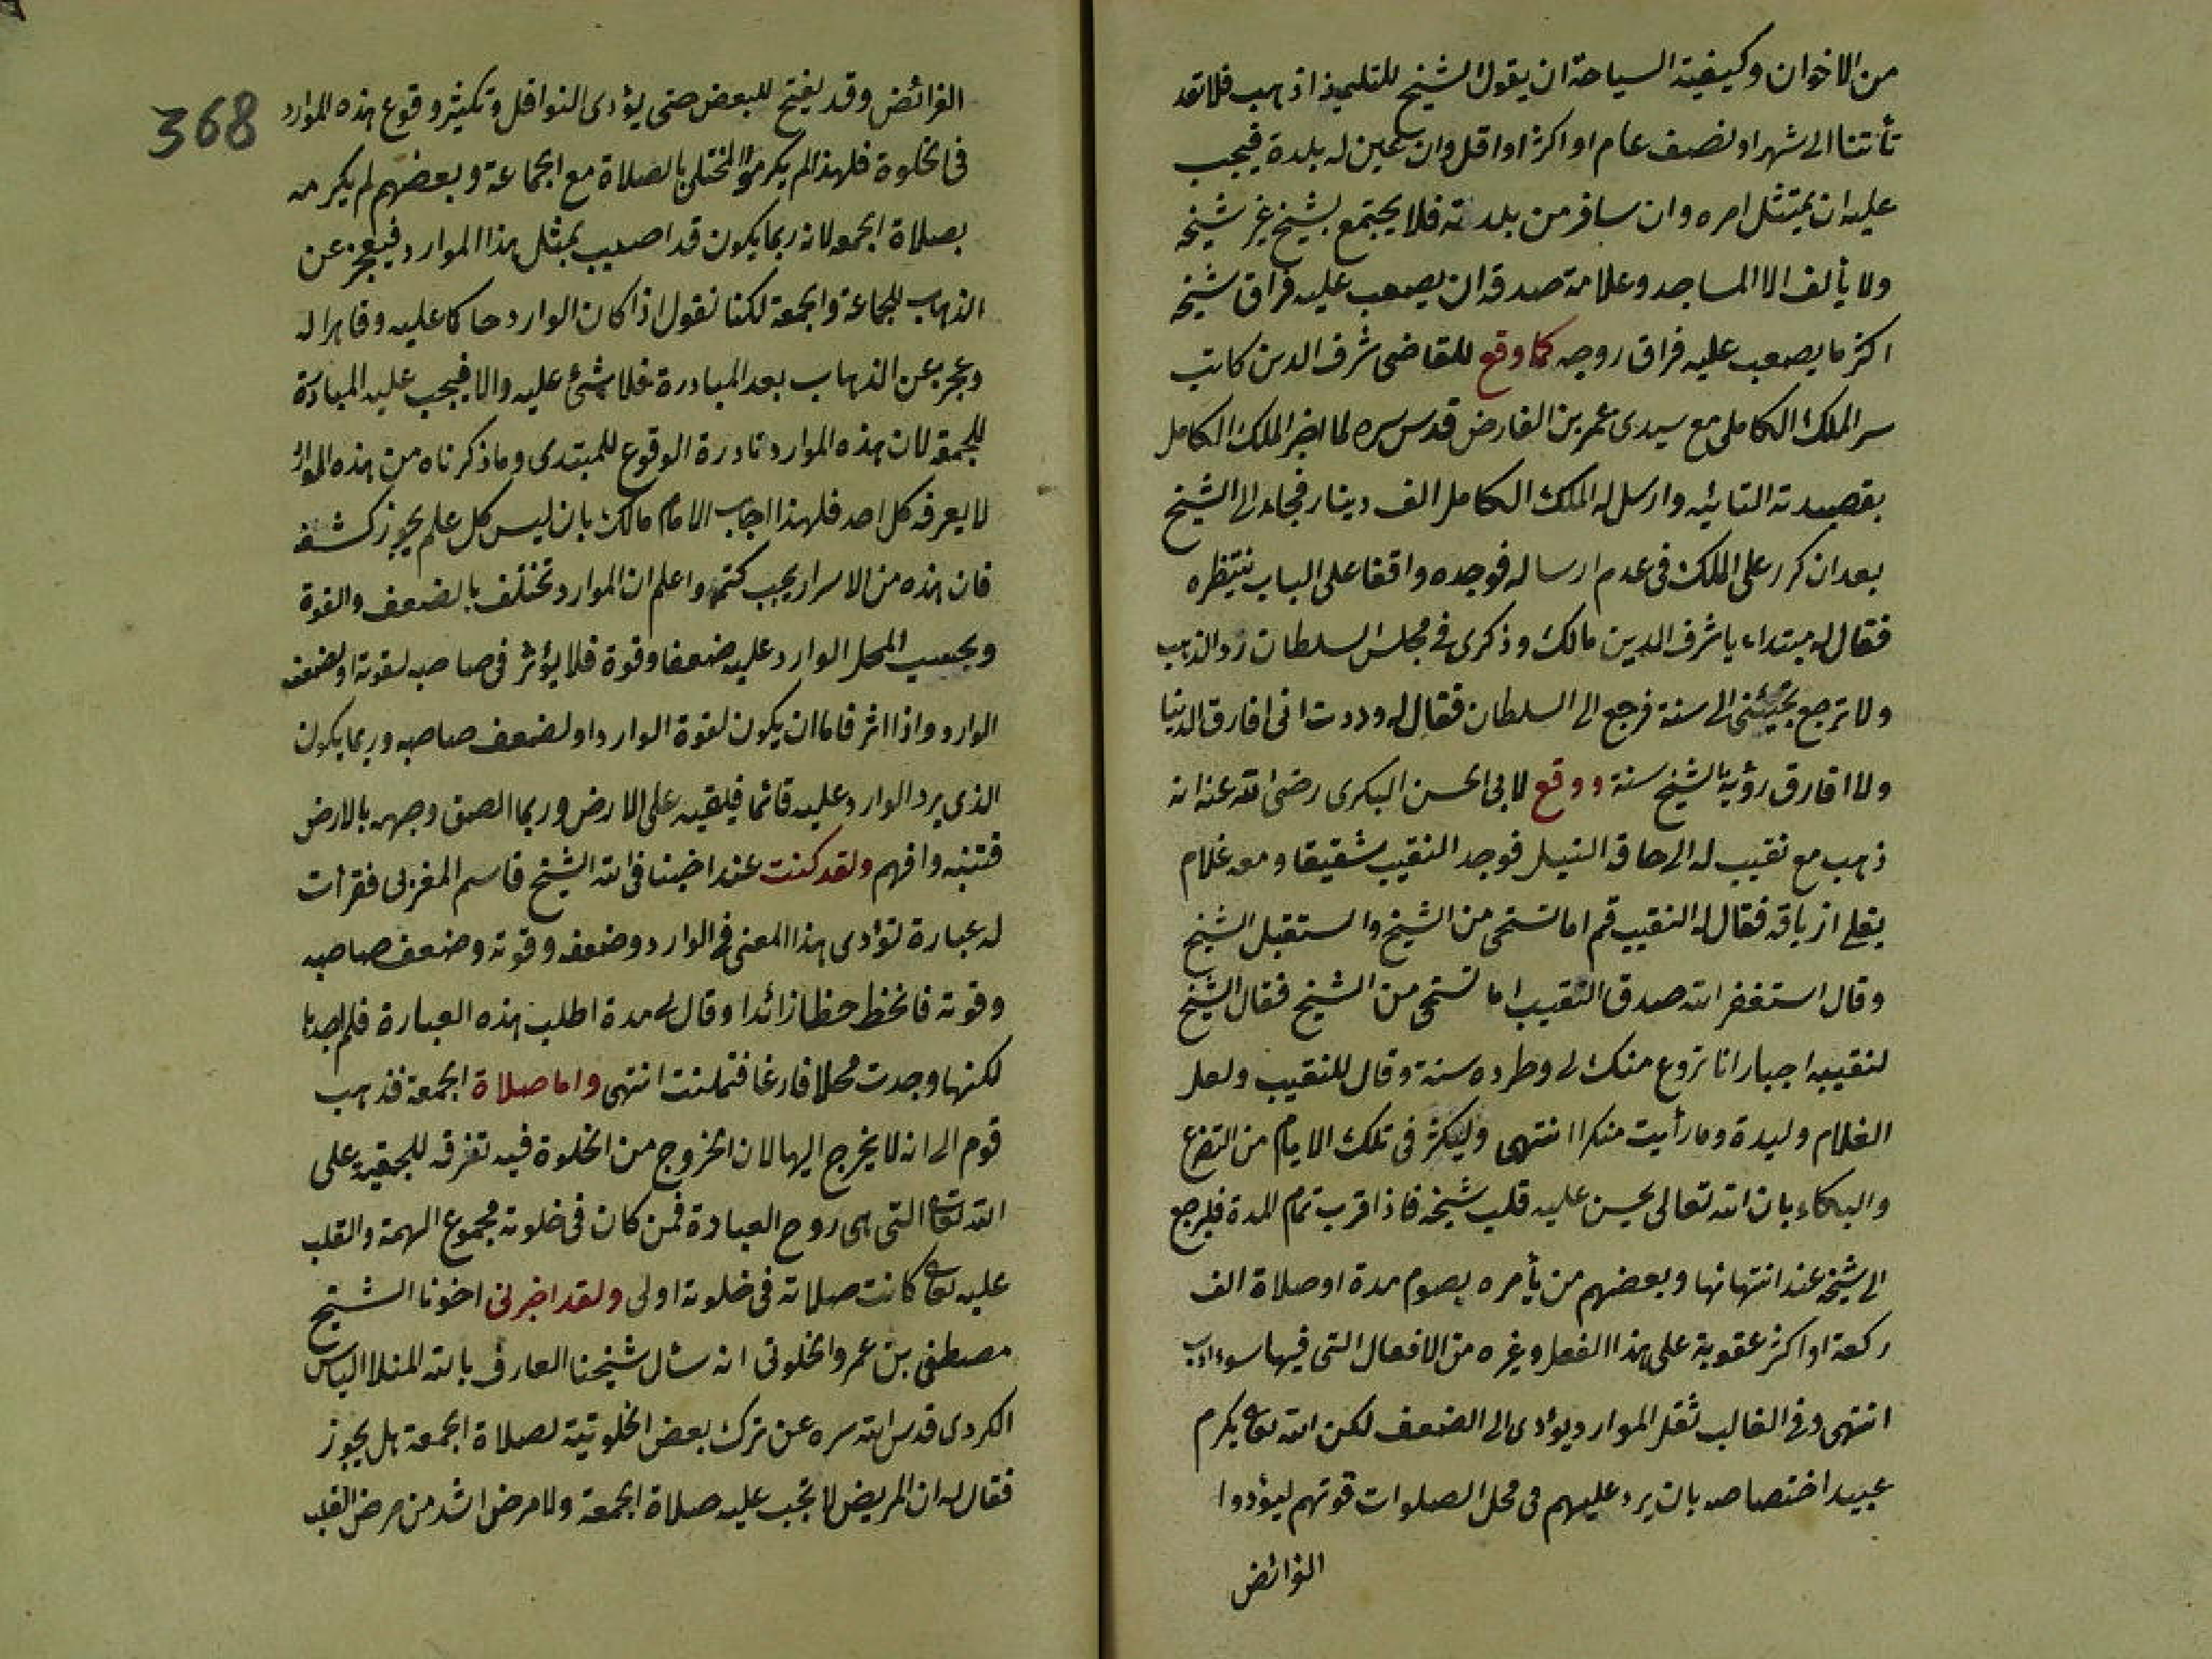 من الاخوان وكيفية السياحة ان يقول الشيخ للتلميذ اذهب فلا تعد
تأتنا الى شهر او نصف عام او اكثر او اقل وان عين له بلدة فيجب
عليه ان يمتثل امره وان سافر من بلدته فلا يجتمع بشيخ غير شيخه
ولا يألف الا المساجد وعلامة صدقه ان يصعب عليه فراق شيخه
اكثر ما يصعب عليه فراق روحه كما وقع للقاضى شرف الدين كاتب
سر الملك الكامل مع سيدى عمر بن الفارض قدس سره لما اخبر الملك الكامل
بقصيدته التائيه وارسل له الملك الكامل الف دينار فجاء الى الشيخ
بعد ان كرر على الملك فى عدم ارساله فوجده واقفا على الباب ينتظره
فقال له مبتداء يا شرف الدين مالك وذكرى فى مجلس السلطان رد الذهب
ولا ترجع تجيئنى الى سنة فرجع الى السلطان فقال له وددت انى افارق الدنيا
ولا افارق رؤية الشيخ سنة ووقع لابى الحسن البكرى رضى الله عنه انه
ذهب مع نقيب له الى حافة النيل فوجد النقيب شقيقا ومعه غلام
يقلع ازياقه فقال له النقيب قم اما تستحى من الشيخ واستقبل الشيخ
وقال استغفر الله صدق النقيب اما تستحى من الشيخ فقال الشيخ
لنقيبه اجبارا نا تروع منك لى وطرده سنة وقال للنقيب ولعل
الغلام وليدة وما رأيت منكرا انتهى وليكثر فى تلك الايام من التضرع
والبكاء بان الله تعالى يحسن عليه قلب شيخه فاذا قرب تمام المدة فليرجع
الى شيخه عند انتهائها وبعضهم من يأمره بصوم مدة او صلاة الف
ركعة او اكثر عقوبة على هذا الفعل وغيره من الافعال التى فيها سوء ادب
انتهى وفى الغالب ثقل الموارد يؤدى الى الضعف لكن الله تعالى يكرم
عبيد اختصاصه بان يرد عليهم فى محل الصلوات قوتهم ليؤدوا
الفرائض
368
الفرائض وقد يفتح للبعض حتى يؤدى النوافل وتكثير وقوع هذه الموارد
فى الخلوة فلهذا لم يكرموا المختلى بالصلاة مع الجماعة وبعضهم لم يكرمه
بصلاة الجمعه لانه ربما يكون قد اصيب بمثل هذا الموارد فيعجز عن
الذهاب للجماعة والجمعة لكنا نقول اذا كان الوارد حاكما عليه وقاهرا له
وعجز عن الذهاب بعد المبادرة فلا شئ عليه والا فيجب عليه المبادرة
للجمعة لان هذه الموارد نادرة الوقوع للمبتدى وما ذكرناه من هذه الموارد
لا يعرفه كل احد فلهذا اجاب الامام مالك بان ليس كل علم يجوز كشفه
فان هذه من الاسرار يجب كتمها واعلم ان الموارد تختلف بالضعف والقوة
وبحسب المحل الوارد عليه ضعفا وقوة فلا يؤثر فى صاحبه لقوته او لضعف
الوارد واذا اثر فاما ان يكون لقوة الوارد او لضعف صاحبه وربما يكون
الذى يرد الوارد عليه قائما فيلقيه على الارض وربما الصق وجهه بالارض
فتنبه وافهم ولقد كنت عند اخينا فى الله الشيخ قاسم المغربى فقرأت
له عبارة تؤدى هذا المعنى فى الوارد وضعفه وقوته وضعف صاحبه
وقوته فانحظ حظا زائدا وقال لى مدة اطلب هذه العبارة فلم اجدها
لكنها وجدت محلا فارغا فتمكنت انتهى واما صلاة الجمعة فذهب
قوم الى انه لا يخرج اليها لان الخروج من الخلوة فيه تفرقه للجمعية على
الله تعالى التى هى روح العبادة فمن كان فى خلوته مجموع الهمة والقلب
عليه تعالى كانت صلاته فى خلوته اولى ولقد اخبرنى اخونا الشيخ
مصطفى بن عمرو الخلوتى انه سأل شيخنا العارف بالله المنلا الياس
الكردى قدس الله سره عن ترك بعض الخلوتية لصلاة الجمعة هل يجوز
فقال له ان المريض لا تجب عليه صلاة الجمعة ولا مرض اشد من مرض القلب